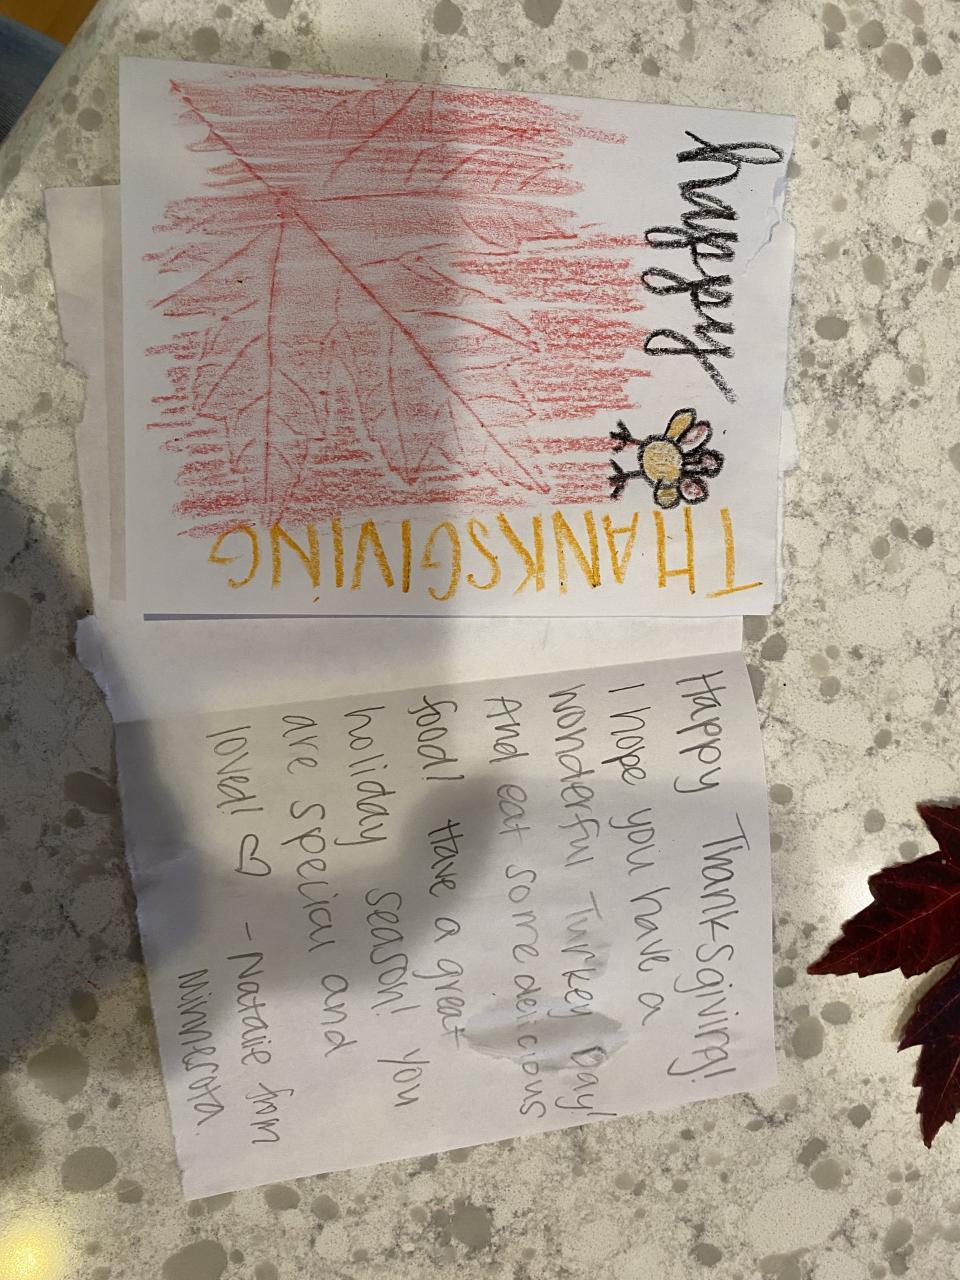 happy
THANKSGIVING
Happy Thanksgiving!
I hope you have a
wonderful Turkey Day!
And eat some delicious
food! Have a great
holiday season! You
are special and
loved! ♡ - Natalie from
Minnesota.